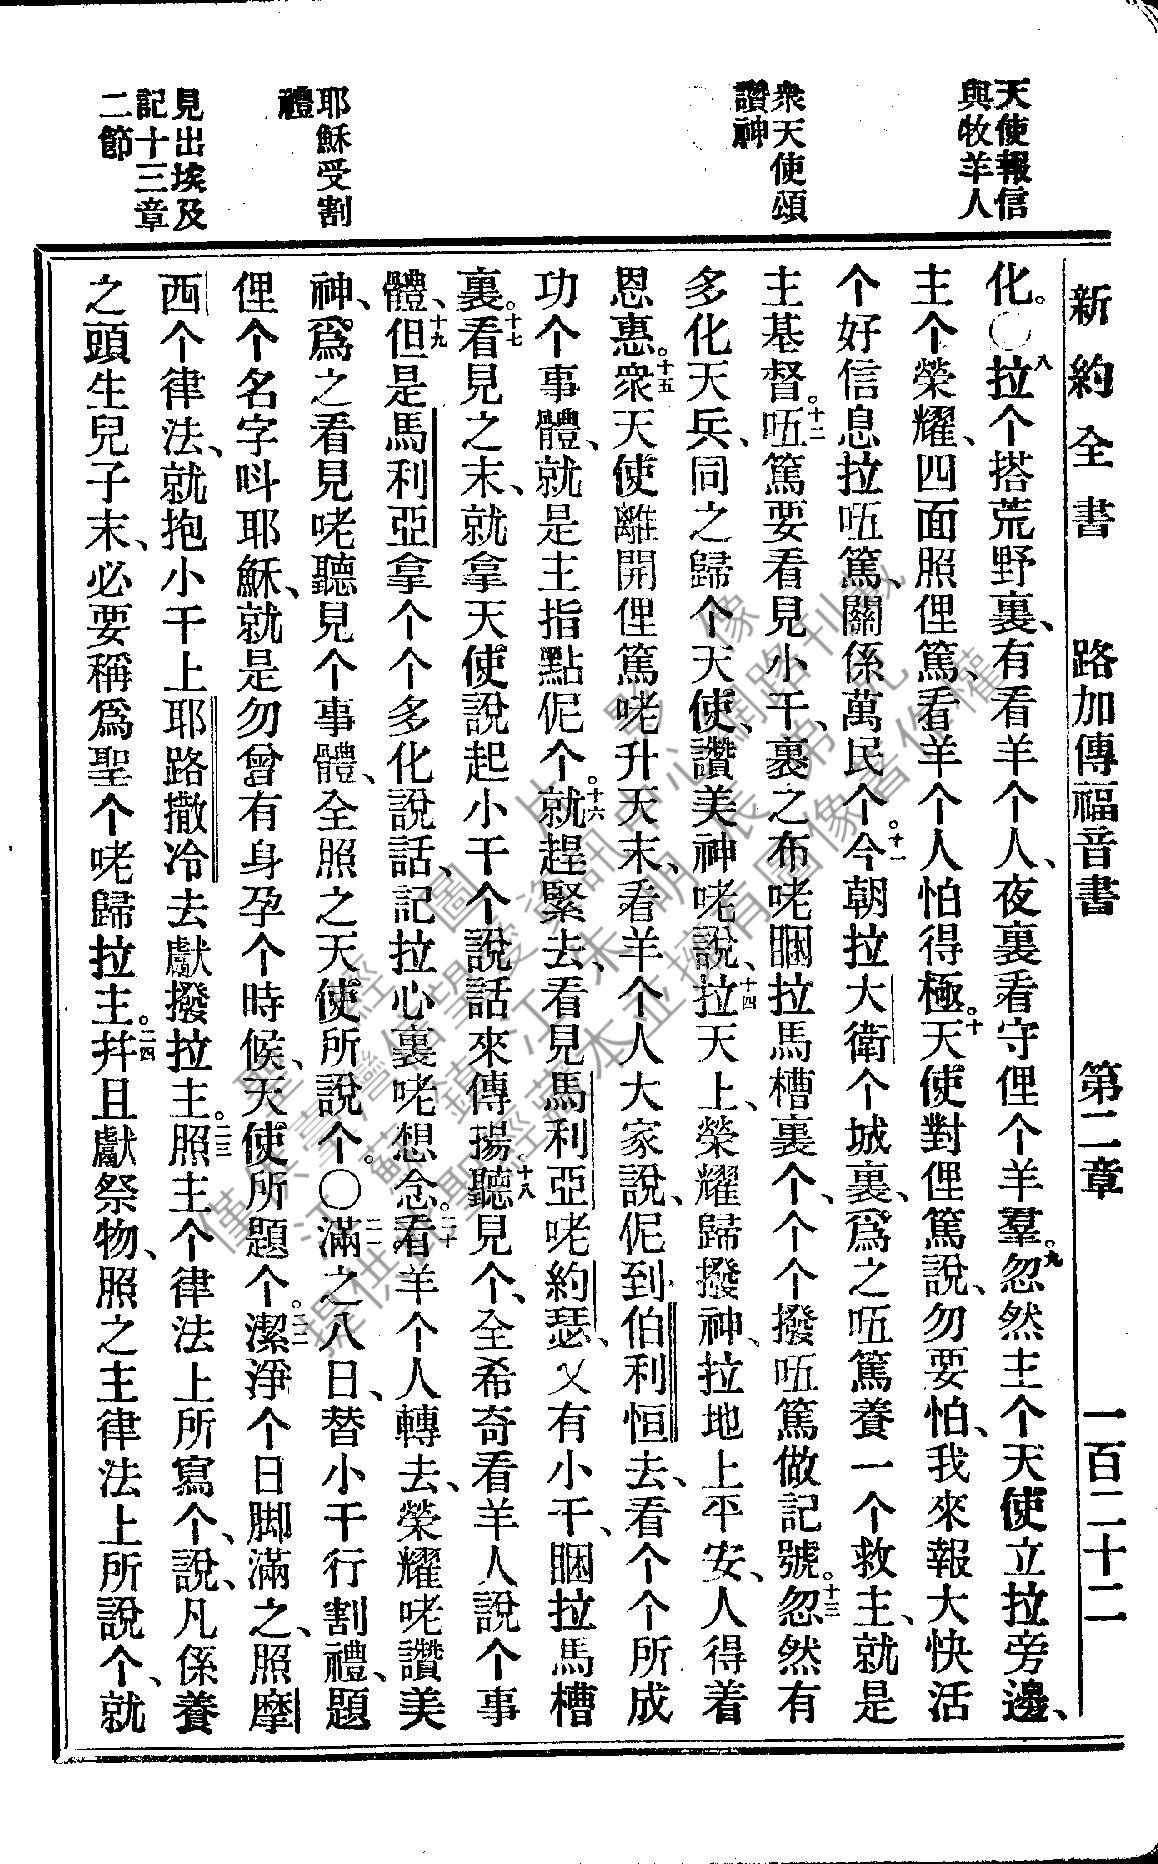 新約全書 路加傳福音書 第二章 一百二十二
天使報信
與牧羊人
衆天使頌
讚神
耶穌受割
禮
見出埃及
記十三章
二節
化。○八拉个搭荒野裏、有看羊个人、夜裏看守俚个羊羣。九忽然主个天使立拉旁邊、
主个榮耀、四面照俚篤、看羊个人怕得極。十天使對俚篤說、勿要怕、我來報大快活
个好信息拉㕶篤、關係萬民个。十一今朝拉大衛个城裏、爲之㕶篤養一个救主、就是
主基督。十二㕶篤要看見小干、裹之布咾睏拉馬槽裏个、个个撥㕶篤做記號。十三忽然有
多化天兵、同之歸个天使、讚美神咾說、十四拉天上、榮耀歸撥神、拉地上平安、人得着
恩惠。十五衆天使離開俚篤咾升天末、看羊个人大家說、伲到伯利恒去、看个个所成
功个事體、就是主指點伲个。十六就趕緊去、看見馬利亞咾約瑟、又有小干、睏拉馬槽
裏。十七看見之末、就拿天使說起小干个說話來傳揚。十八聽見个、全希奇看羊人說个事
體、十九但是馬利亞拿个个多化說話、記拉心裏咾想念。二十看羊个人轉去、榮耀咾讚美
神、爲之看見咾聽見个事體、全照之天使所說个。○二一滿之八日、替小干行割禮、題
俚个名字呌耶穌、就是勿曾有身孕个時候、天使所題个。二二潔淨个日脚滿之、照摩
西个律法、就抱小干上耶路撒冷去獻撥拉主。二三照主个律法上所寫个、說、凡係養
之頭生兒子末、必要稱爲聖个咾歸拉主。二四拼且獻祭物、照之主律法上所說个、就
聖經圖片影像
僅供臺灣信望愛資訊中心網路刊載
江蘇鎮江朱明辰帶此
提供聖經藏本並擁有圖像著作權